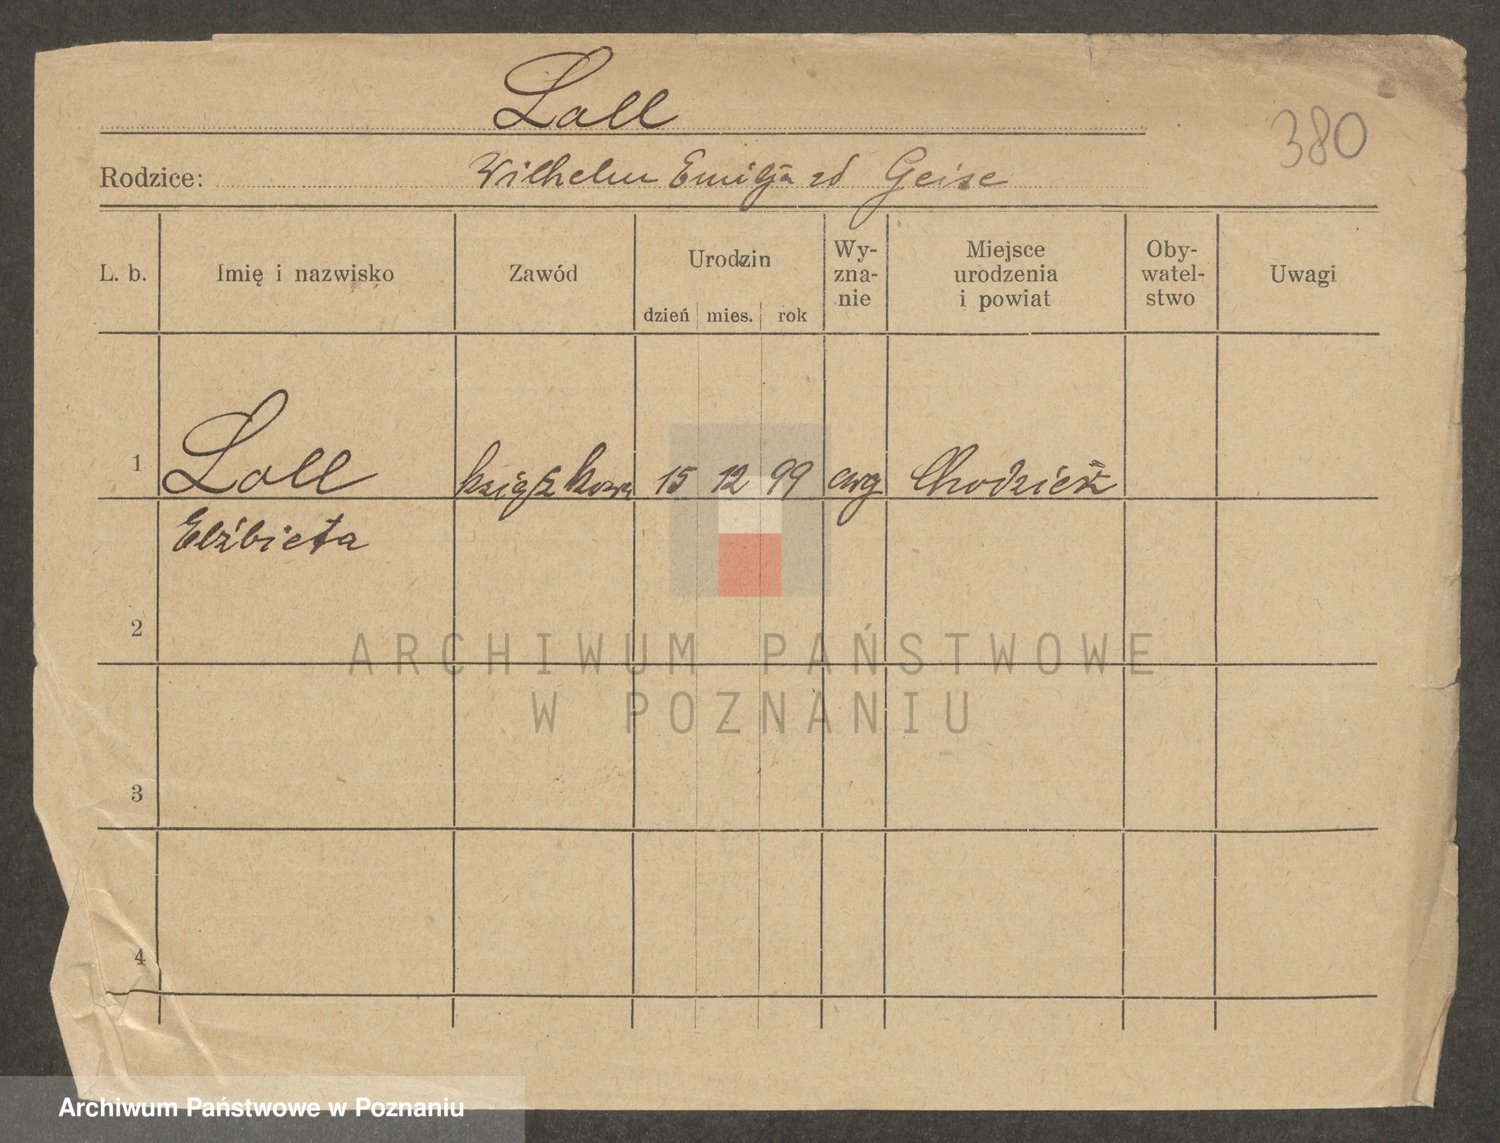 Loll
380
Rodzice: Wilhelm Emilja zd Geise
L. b. Imię i nazwisko Zawód Urodzin dzień mies. rok Wy-zna-nie Miejsce urodzenia i powiat Oby-watel-stwo Uwagi
1 Loll książkowa 15 12 99 ewg Chodzież
Elżbieta
2
ARCHIWUM PAŃSTWOWE
W POZNANIU
3
4
Archiwum Państwowe w Poznaniu